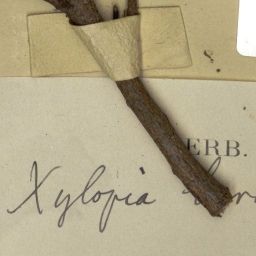 ERB.
Xylopia